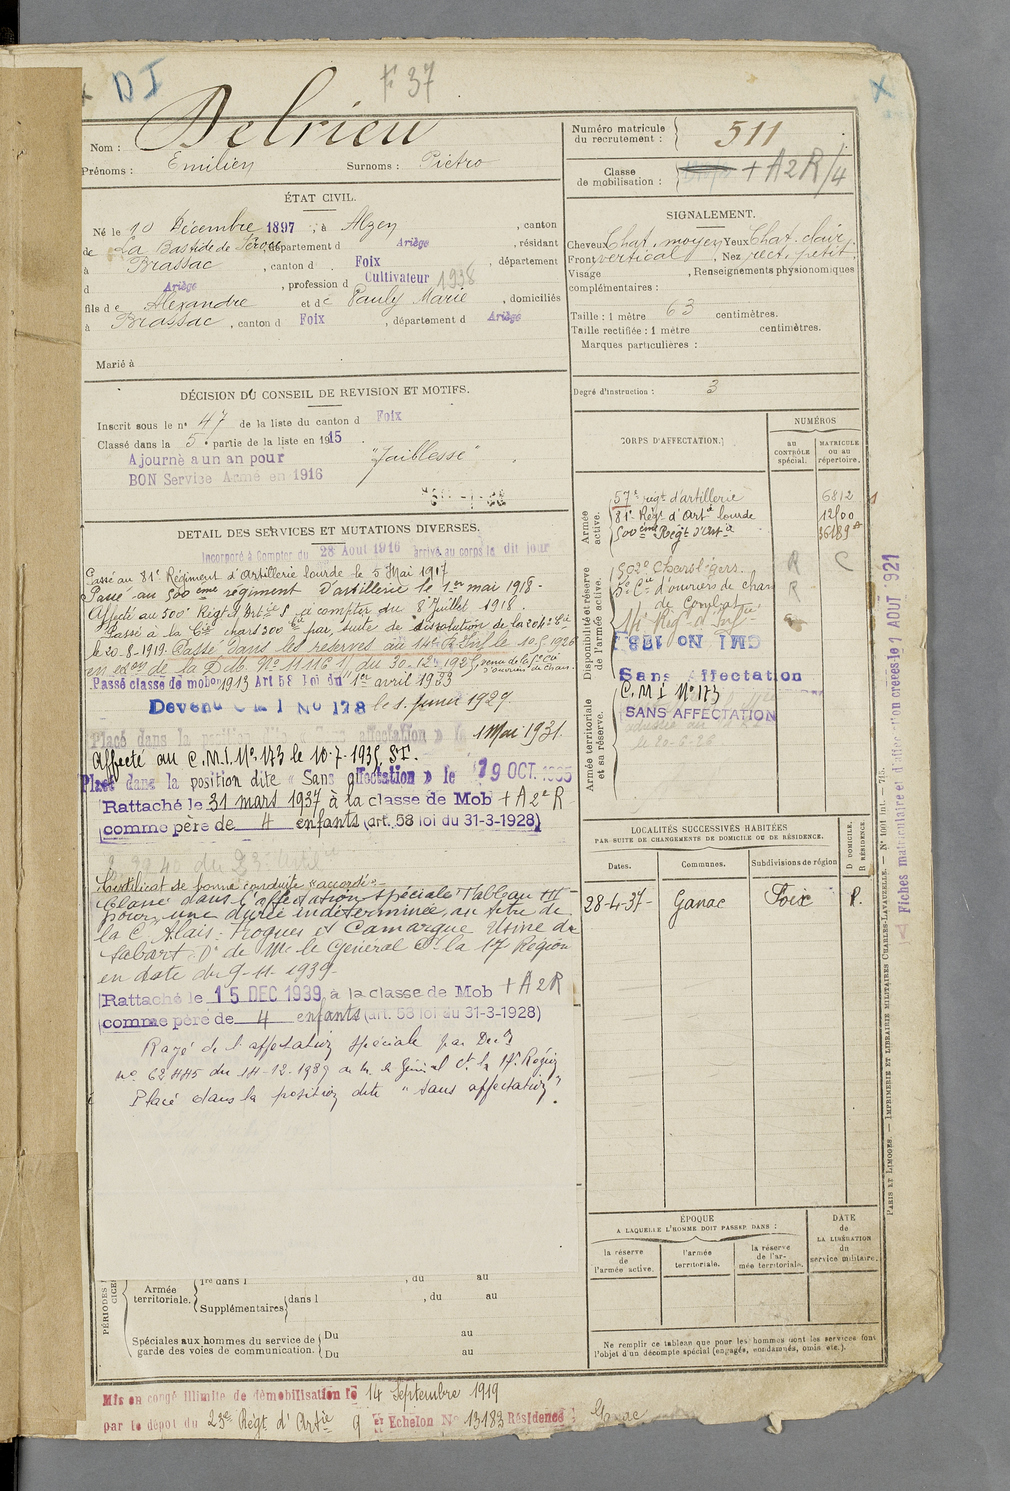 DI
F 37
Nom : Delrieu
Prénoms : Emilien Surnoms : Pietro
ÉTAT CIVIL.
Né le 10 Décembre 1897, à Alzen, canton
de La Bastide de Sérou, département d Ariège, résidant
à Brassac, canton d Foix, département
d Ariège, profession d Cultivateur 1938
fils de Alexandre et de Pauly Marie, domiciliés
à Brassac, canton d Foix, département d Ariège
Marié à
DÉCISION DU CONSEIL DE REVISION ET MOTIFS.
Inscrit sous le n° 47 de la liste du canton d Foix
Classé dans la 5e partie de la liste en 1915
Ajourné a un an pour "faiblesse"
BON Service Armé en 1916
DETAIL DES SERVICES ET MUTATIONS DIVERSES.
Incorporé à Compter du 28 Aout 1916 arrivé au corps le dit jour
Passé au 81e Régiment d'artillerie lourde le 5 Mai 1917
Passé au 500ème régiment d'artillerie le 1er mai 1918.
Affecté au 500e Régt d'Artie à compter du 8 Juillet 1918.
Passé à la Cie chars 300 par suite de dissolution de la 204e Cie
le 20-8-1919. Classé dans les réserves au 14e R. Inf le 10.5.1926
en exon de la D.M. N° 11116 1/1 du 30-12-1925
Passé classe de mobon 1913 Art 58 Loi du 1er avril 1923
Devenu C M I No 178 le 1. janvier 1929
Placé dans la position dite Sans affectation le 1 Mai 1931.
Affecté au C.M.I. N° 173 le 10-7-1935. S.I.
Placé dans la position dite « Sans affectation » le 19 OCT. 1935
Rattaché le 31 mars 1937 à la classe de Mob + A 2e R
comme père de 4 enfants (art. 58 loi du 31-3-1928)
Certificat de bonne conduite "accordé"
Classé dans l'affectation spéciale Tableau III
pour une durée indéterminée, au titre de
la Cie Alais, Froges et Camargue Usine de
Sabart. Dn de Mr le Général Ct la 17 Région
en date du 9-11-1939-
Rattaché le 15 DEC 1939 à la classe de Mob + A 2 R
comme père de 4 enfants (art. 58 loi du 31-3-1928)
Rayé de l'affectation spéciale par Don
no 62445 du 14-12-1939 de M. le Général Ct la 17e Région
Placé dans la position dite "sans affectation".
PÉRIODES
Armée territoriale. 1re dans l , du au
Supplémentaires dans l , du au
Spéciales aux hommes du service de garde des voies de communication. Du au
Du au
Mis en congé illimité de démobilisation le 14 Septembre 1919
par le dépot du 23e Régt d'Artie 9 Echelon N° 13183 Résidence : Ganac
Numéro matricule du recrutement : 511
Classe de mobilisation : + A 2 R/4
SIGNALEMENT.
Cheveux Chat. moyen Yeux Chat. clair,
Front vertical, Nez rect. petit.
Visage , Renseignements physionomiques
complémentaires :
Taille : 1 mètre 63 centimètres.
Taille rectifiée : 1 mètre centimètres.
Marques particulières :
Degré d'instruction : 3
CORPS D'AFFECTATION.
NUMÉROS
au CONTRÔLE spécial.
MATRICULE ou au répertoire.
Armée active.
57e régt d'artillerie 6812
81e Régt d'Artie lourde 12800
500ème Regt d'Artie 36189
Disponibilité et réserve de l'armée active.
502e Chars légers. R C
5e Cie d'ouvriers de chars de Combat R
14e Régt d'Infie
CMI No 178
Sans Affectation
Armée territoriale et sa réserve.
C.M.I N°173
SANS AFFECTATION
LOCALITÉS SUCCESSIVES HABITÉES
PAR SUITE DE CHANGEMENTS DE DOMICILE OU DE RÉSIDENCE.
Dates. Communes. Subdivisions de région D DOMICILE. R RÉSIDENCE.
28-4-37- Ganac Foix R.
ÉPOQUE
A LAQUELLE L'HOMME DOIT PASSER DANS :
la réserve de l'armée active.
l'armée territoriale.
la réserve de l'armée territoriale.
DATE de LA LIBÉRATION du service militaire.
Ne remplir ce tableau que pour les hommes dont les services font
l'objet d'un décompte spécial (engagés, condamnés, omis etc.).
PARIS ET LIMOGES. — IMPRIMERIE ET LIBRAIRIE MILITAIRES CHARLES-LAVAUZELLE. — N° 1001 int. — 7-15.
Fiches matriculaire et d'affectation créées le 1 AOUT 1921